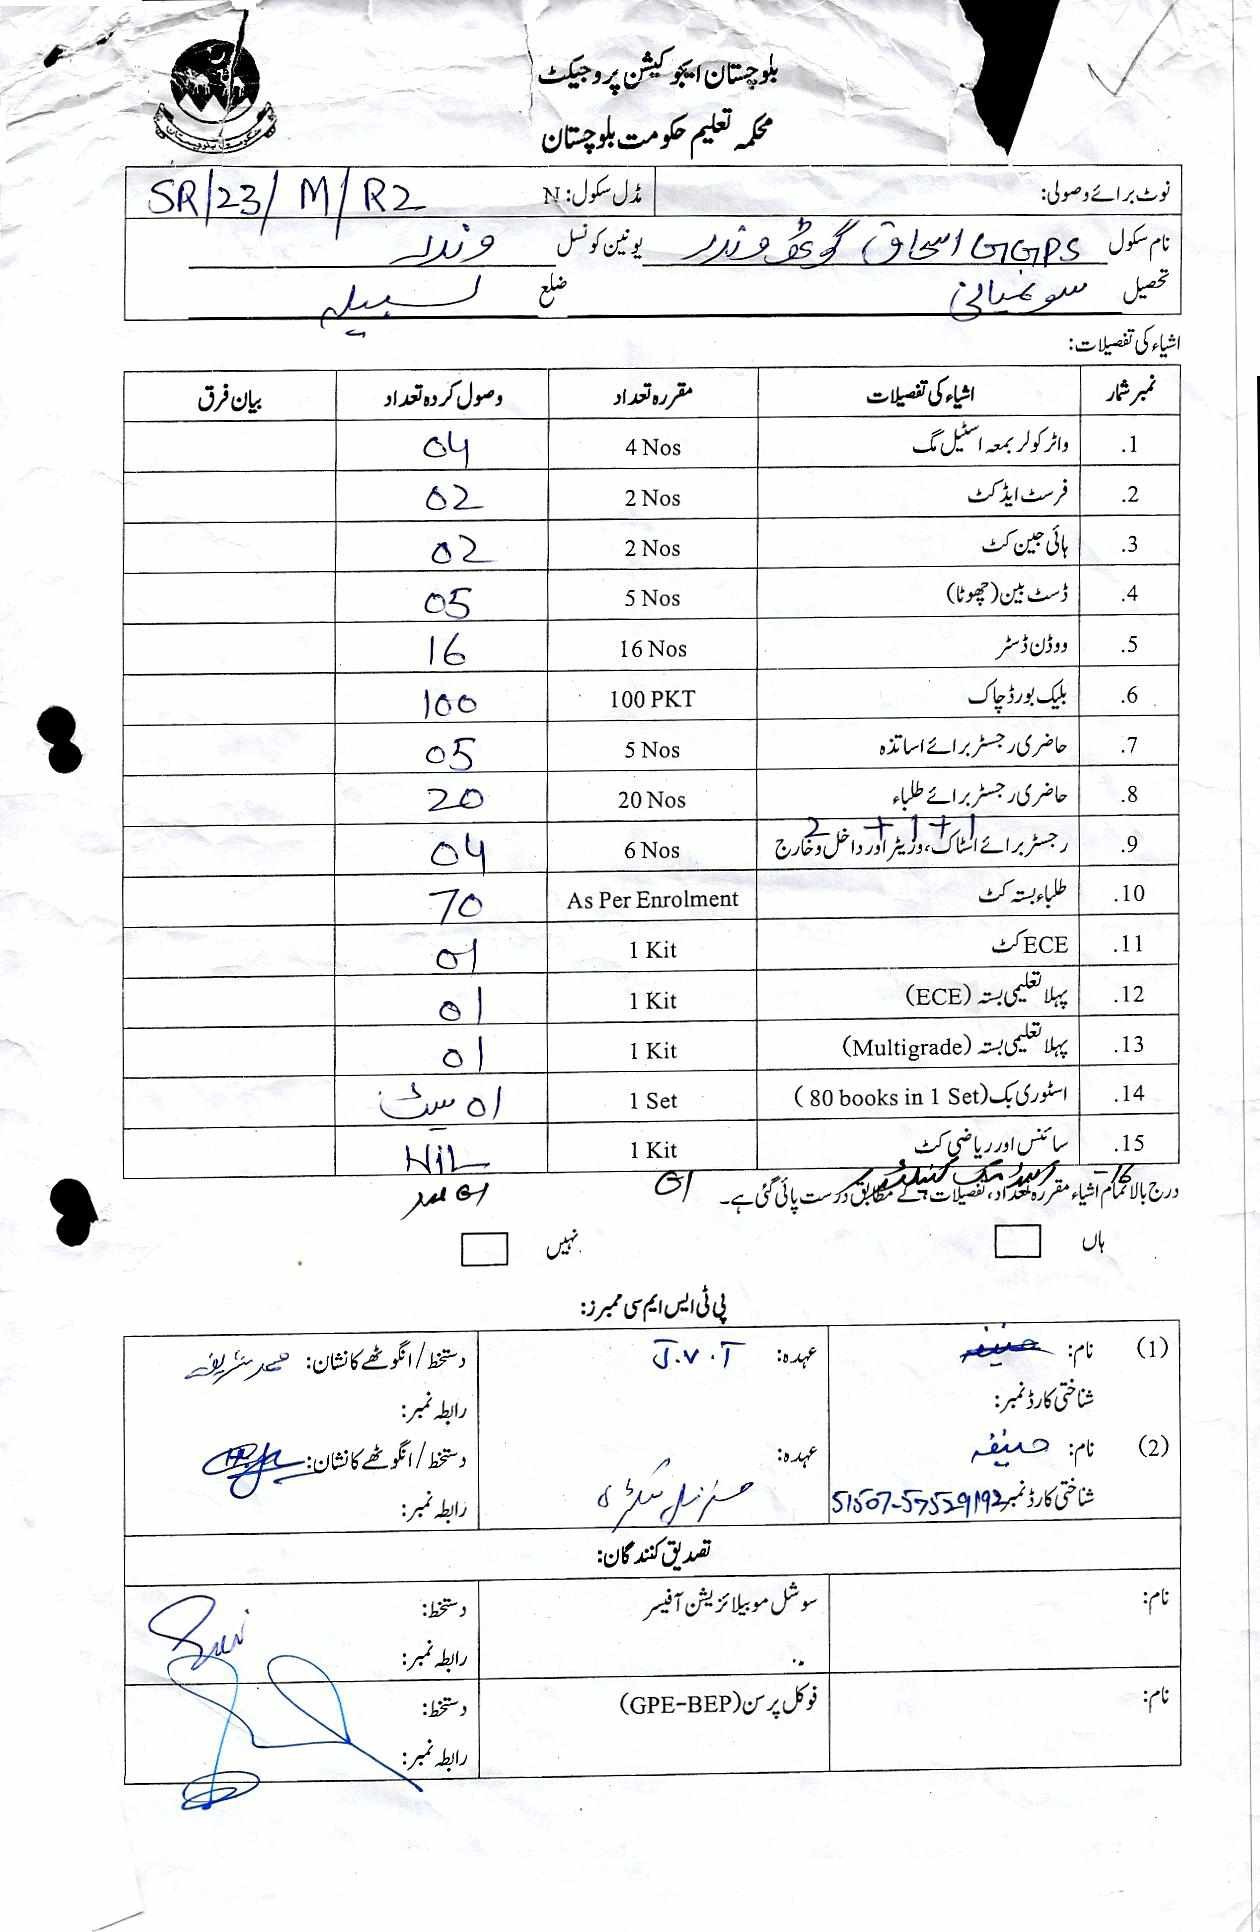 بلوچستان ایجوکیشن پروجیکٹ
محکمہ تعلیم حکومت بلوچستان
نوٹ برائے وصولی: مڈل سکول: N SR/23/M/R2
نام سکول GGPS اسحاق گوٹھ وندر یونین کونسل وندر
تحصیل سونمیانی ضلع لسبیلہ
اشیاء کی تفصیلات:
نمبر شمار اشیاء کی تفصیلات مقررہ تعداد وصول کردہ تعداد بیان فرق
1. واٹر کولر بمعہ اسٹیل مگ 4 Nos 04
2. فرسٹ ایڈ کٹ 2 Nos 02
3. ہائی جین کٹ 2 Nos 02
4. ڈسٹ بین (چھوٹا) 5 Nos 05
5. ووڈن ڈسٹر 16 Nos 16
6. بلیک بورڈ چاک 100 PKT 100
7. حاضری رجسٹر برائے اساتذہ 5 Nos 05
8. حاضری رجسٹر برائے طلباء 20 Nos 20
2 + 1 + 1
9. رجسٹر برائے اسٹاک، وزیٹر اور داخل و خارج 6 Nos 04
10. طلباء بستہ کٹ As Per Enrolment 70
11. ECE کٹ 1 Kit 01
12. پہلا تعلیمی بستہ (ECE) 1 Kit 01
13. پہلا تعلیمی بستہ (Multigrade) 1 Kit 01
14. اسٹوری بک (80 books in 1 Set) 1 Set 01 سیٹ
15. سائنس اور ریاضی کٹ 1 Kit NIL
16- 01 01
درج بالا تمام اشیاء مقررہ تعداد، تفصیلات کے مطابق درست پائی گئی ہے۔
ہاں نہیں
پی ٹی ایس ایم سی ممبرز:
(1) نام: حنیفہ عہدہ: J.V.T دستخط/انگوٹھے کا نشان: محمد شریف
شناختی کارڈ نمبر: رابطہ نمبر:
(2) نام: حنیفہ عہدہ: دستخط/انگوٹھے کا نشان:
شناختی کارڈ نمبر 51507-57529192 جنرل سکرٹری رابطہ نمبر:
تصدیق کنندگان:
نام: سوشل موبیلائزیشن آفیسر دستخط:
رابطہ نمبر:
نام: فوکل پرسن (GPE-BEP) دستخط:
رابطہ نمبر: